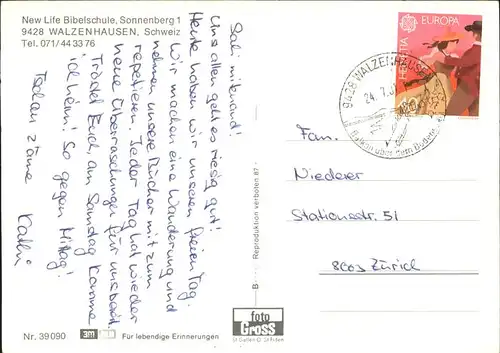 New Life Bibelschule, Sonnenberg 1
9428 WALZENHAUSEN, Schweiz
Tel. 071/44 33 76
Sali mitenand!
Uns allen geht es riesig gut!
Heute haben wir unseren freien Tag.
Wir machen eine Wanderung und
nehmen unsere Bücher mit zum
repetieren. Jeder Tag hat wieder
neue Überraschungen für uns bereit.
Tröstet Euch, am Samstag komme
ich heim! So gegen Mittag!
Tschau zäme Kathi
Nr. 39 090
Für lebendige Erinnerungen
Reproduktion verboten 87
B
foto
Gross
St. Gallen
HELVETIA
EUROPA
9428 WALZENHAUSEN
24.7.
Balkon über dem Bodensee
Fam.
Niederer
Stationsstr. 51
8003 Zürich